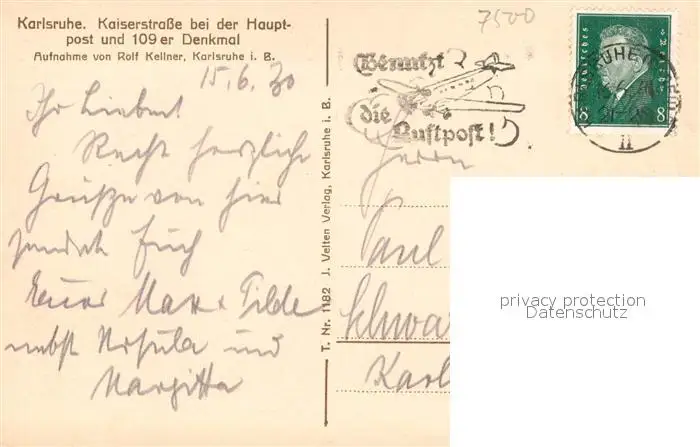 Karlsruhe. Kaiserstraße bei der Haupt-
post und 109er Denkmal
Aufnahme von Rolf Kellner, Karlsruhe i. B.
15.6.30
Ihr Lieben!
Recht herzliche
Grüße von hier
sendet Euch
Eure Max + Tilde
nebst Ursula und
Margitta
T. Nr. 1182 J. Velten Verlag, Karlsruhe i. B.
7500
Benutzt
die
Luftpost!
Deutsches Reich
8 8
KARLSRUHE
11
Herrn
Paul
Schwa
Karl
privacy protection
Datenschutz